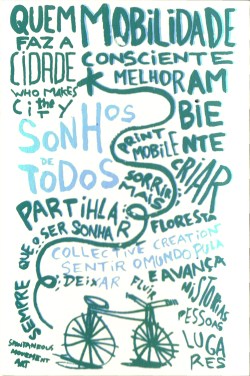 QUEM
FAZ A
CIDADE
WHO MAKES
the
CITY
MOBILIDADE
CONSCIENTE
MELHOR AM
BIE
NTE
SONHOS
DE
TODOS
PRINT
MOBILE
CRIAR
SORRIR
MAIS
PARTIHLAR
O SER SONHA
FLORESTA
COLLECTIVE CREATION
SENTIR O MUNDO PULA
E AVANÇA
DEIXAR
FLUIR
SEMPRE QUE
HISTORIAS
PESSOAS
LUGA
RES
SPONTANEOUS
MOVEMENT
ART